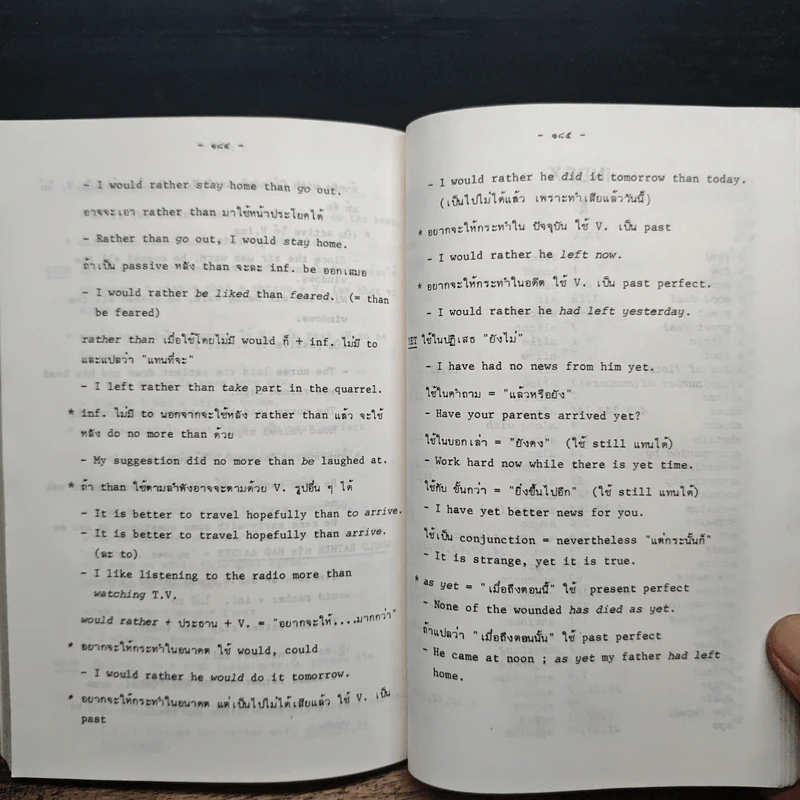 - ๑๘๔ -
- I would rather stay home than go out.
อาจจะเอา rather than มาใช้หน้าประโยคได้
- Rather than go out, I would stay home.
ถ้าเป็น passive หลัง than จะละ inf. be ออกเสมอ
- I would rather be liked than feared. (= than
be feared)
rather than เมื่อใช้โดยไม่มี would ก็ + inf. ไม่มี to
และแปลว่า "แทนที่จะ"
- I left rather than take part in the quarrel.
* inf. ไม่มี to นอกจากจะใช้หลัง rather than แล้ว จะใช้
หลัง do no more than ด้วย
- My suggestion did no more than be laughed at.
* ถ้า than ใช้ตามลำพังอาจจะตามด้วย V. รูปอื่น ๆ ได้
- It is better to travel hopefully than to arrive.
- It is better to travel hopefully than arrive.
(ละ to)
- I like listening to the radio more than
watching T.V.
would rather + ประธาน + V. = "อยากจะให้....มากกว่า"
* อยากจะให้กระทำในอนาคต ใช้ would, could
- I would rather he would do it tomorrow.
* อยากจะให้กระทำในอนาคต แต่เป็นไปไม่ได้เสียแล้ว ใช้ V. เป็น
past
- ๑๘๕ -
- I would rather he did it tomorrow than today.
(เป็นไปไม่ได้แล้ว เพราะทำเสียแล้ววันนี้)
* อยากจะให้กระทำใน ปัจจุบัน ใช้ V. เป็น past
- I would rather he left now.
* อยากจะให้กระทำในอดีต ใช้ V. เป็น past perfect.
- I would rather he had left yesterday.
YET ใช้ในปฏิเสธ "ยังไม่"
- I have had no news from him yet.
ใช้ในคำถาม = "แล้วหรือยัง"
- Have your parents arrived yet?
ใช้ในบอกเล่า = "ยังคง" (ใช้ still แทนได้)
- Work hard now while there is yet time.
ใช้กับ ขั้นกว่า = "ยิ่งขึ้นไปอีก" (ใช้ still แทนได้)
- I have yet better news for you.
ใช้เป็น conjunction = nevertheless "แต่กระนั้นก็"
- It is strange, yet it is true.
* as yet = "เมื่อถึงตอนนี้" ใช้ present perfect
- None of the wounded has died as yet.
ถ้าแปลว่า "เมื่อถึงตอนนั้น" ใช้ past perfect
- He came at noon ; as yet my father had left
home.